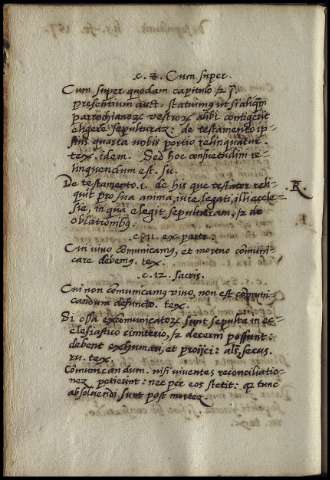 c. 8. Cum super.
Cum super quodam capitulo &
presentium auct. statuimus ut si aliqui
parrochianorum vestrorum alibi contigerit
eligere sepulturam: de testamento ip-
sius quarta vobis portio relinquatur.
tex. idem. Sed hoc consuetudini re-
linquendum est.
De testamento. l. de his que testator reli-
quit pro sua anima, iure legati, illi eccle-
sie, in qua elegit sepulturam, & de
oblationibus.
R.
c. 11. ex parte.
Cui vivo comunicamus, et mortuo comuni-
care debemus. tex.
c. 12. sacris.
Cui non comunicamus vivo, non est comuni-
candum defuncto. tex.
Si ossa excomunicatorum sunt sepulta in ec-
clesiastico cimiterio, & decerni possunt:
debent exhumari, et proijci: als. secus.
tex.
Comunicandum. nisi viventes reconciliatio-
nem petierunt: nec per eos stetit: q. tunc
absolvendi sunt post mortem.